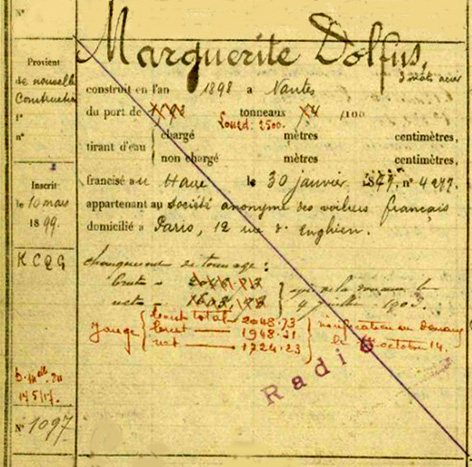 N°
Marguerite Dolfus,
3 mâts acier
Provient
de nouvelle
Construction
f°
n°
construit en l'an 1898 à Nantes
du port de tonneaux /100
Lourd. 2500.
tirant d'eau
chargé mètres centimètres,
non chargé mètres centimètres,
francisé au Havre le 30 janvier n° 4277.
appartenant au Société anonyme des voiliers français
domicilié à Paris, 12 rue d'Enghien.
Inscrit
le 10 mars
1899.
KCQG
changement de tonnage :
brute =
net =
de la douane le
4 juillet 1902.
Jauge
brute totale 2048.73
brut 1948.21
net 1724.23
octobre 14.
Radié
17/5/17.
N° 1097